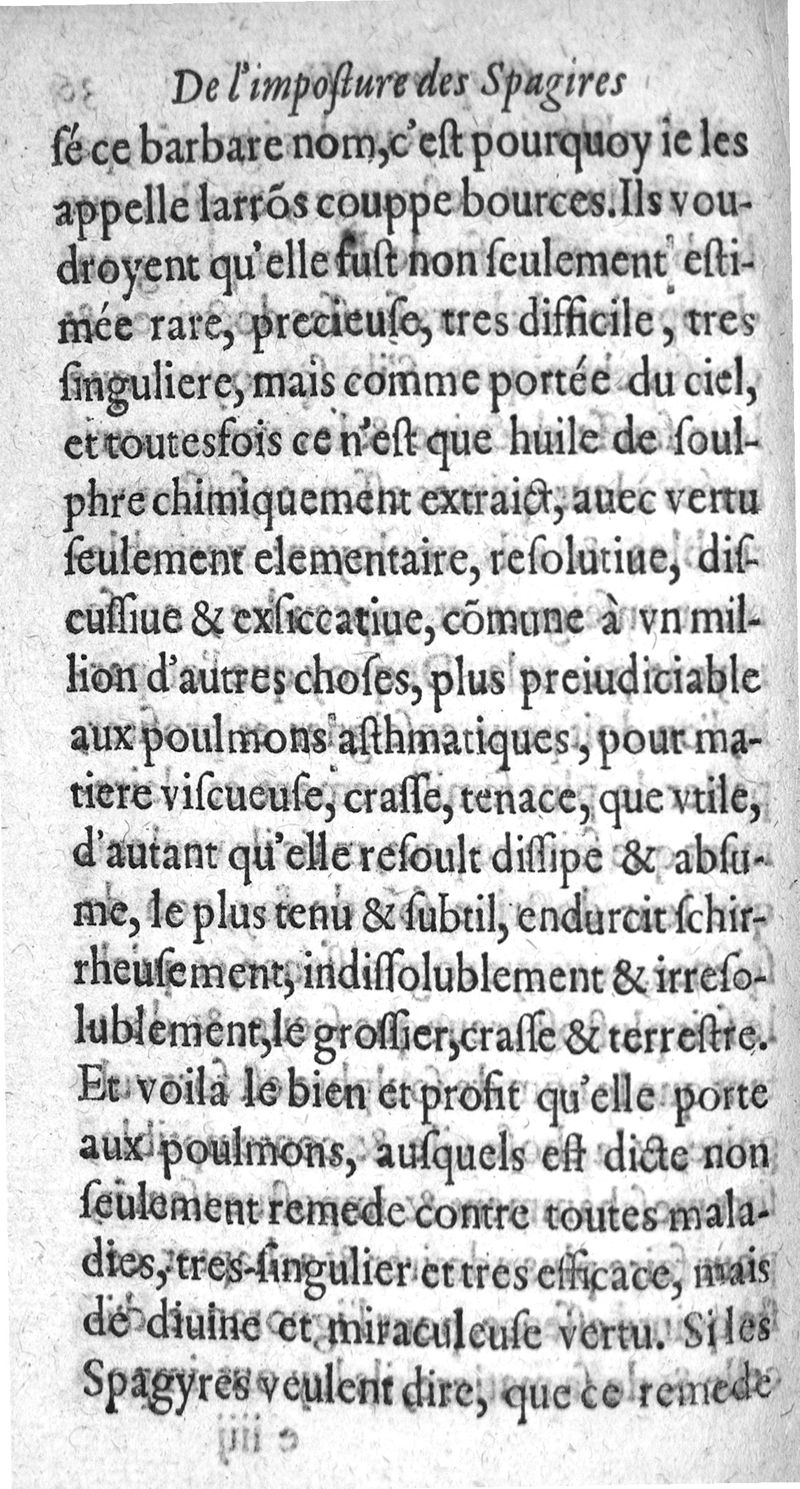 De l'impoſture des Spagires
ſé ce barbare nom, c'eſt pourquoy ie les
appelle larrõs couppe bources. Ils vou-
droyent qu'elle fuſt non ſeulement eſti-
mée rare, precieuſe, tres difficile, tres
ſinguliere, mais comme portée du ciel,
et toutesfois ce n'eſt que huile de ſoul-
phre chimiquement extraict, auec vertu
ſeulement elementaire, reſolutiue, diſ-
cuſſiue & exſiccatiue, cõmune à vn mil-
lion d'autres choſes, plus preiudiciable
aux poulmons aſthmatiques, pour ma-
tiere viſcueuſe, craſſe, tenace, que vtile,
d'autant qu'elle reſoult diſſipe & abſu-
me, le plus tenu & ſubtil, endurcit ſchir-
rheuſement, indiſſolublement & irreſo-
lublement, le groſſier, craſſe & terreſtre.
Et voila le bien et profit qu'elle porte
aux poulmons, auſquels eſt dicte non
ſeulement remede contre toutes mala-
dies, tres-ſingulier et tres efficace, mais
de diuine et miraculeuſe vertu. Si les
Spagyres veulent dire, que ce remede